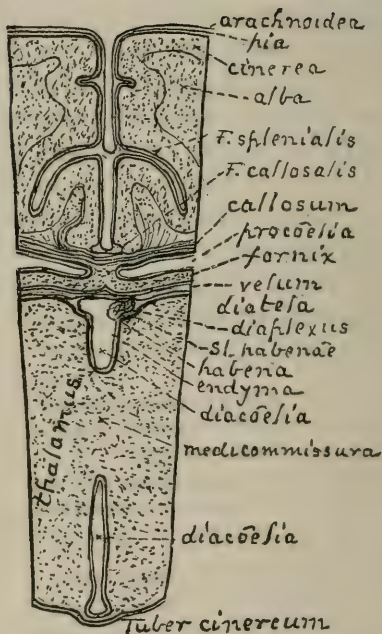 arachnoidea
pia
cinerea
alba
F. splenialis
F. callosalis
callosum
procoelia
fornix
velum
diatela
diaplexus
Sl. habenae
habena
endyma
diacoelia
thalamus
medicommissura
diacoelia
Tuber cinereum